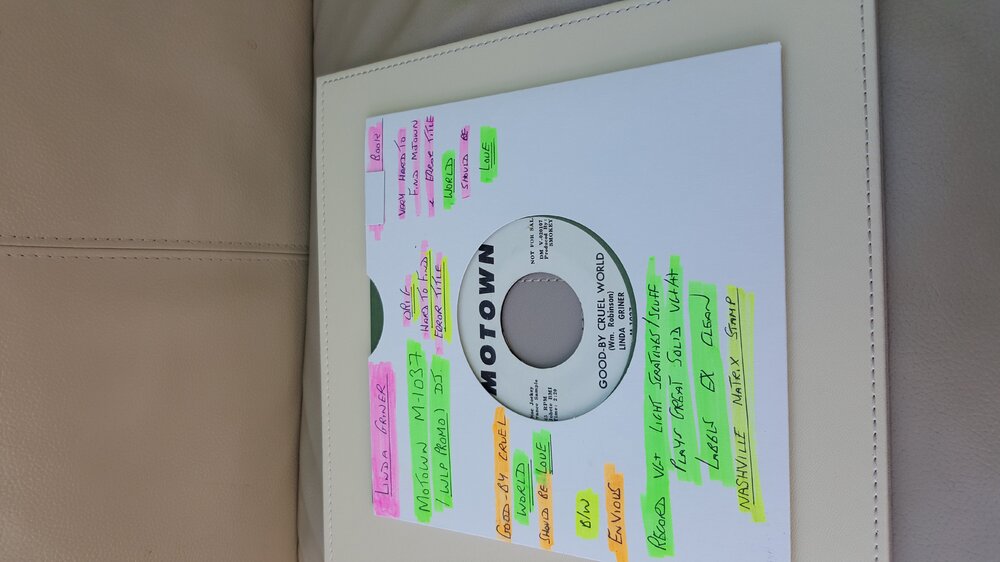 LINDA GRINER
MOTOWN M-1037
(WLP PROMO) DJ.
ORIG
HARD TO FIND
ERROR TITLE
VERY HARD TO
FIND MOTOWN
ERROR TITLE
WORLD
SHOULD BE
LOVE
GOOD-BY CRUEL
WORLD
SHOULD BE LOVE
B/W
ENVIOUS
MOTOWN
NOT FOR SAL
DM V-020107
Produced By:
SMOKEY
45 RPM
BMI
Time: 2:30
GOOD-BY CRUEL WORLD
(Wm. Robinson)
LINDA GRINER
RECORD VG+ LIGHT SCRATCHES/SCUFF
PLAYS GREAT SOLID VG+A+
LABELS EX CLEAN
NASHVILLE MATRIX STAMP